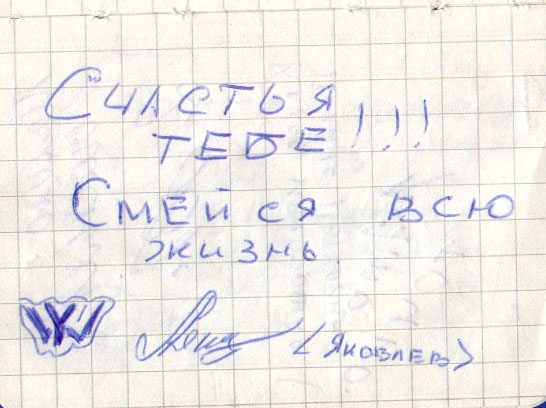 Счастья
тебе!!!
Смейся всю
жизнь
(Яковлев)